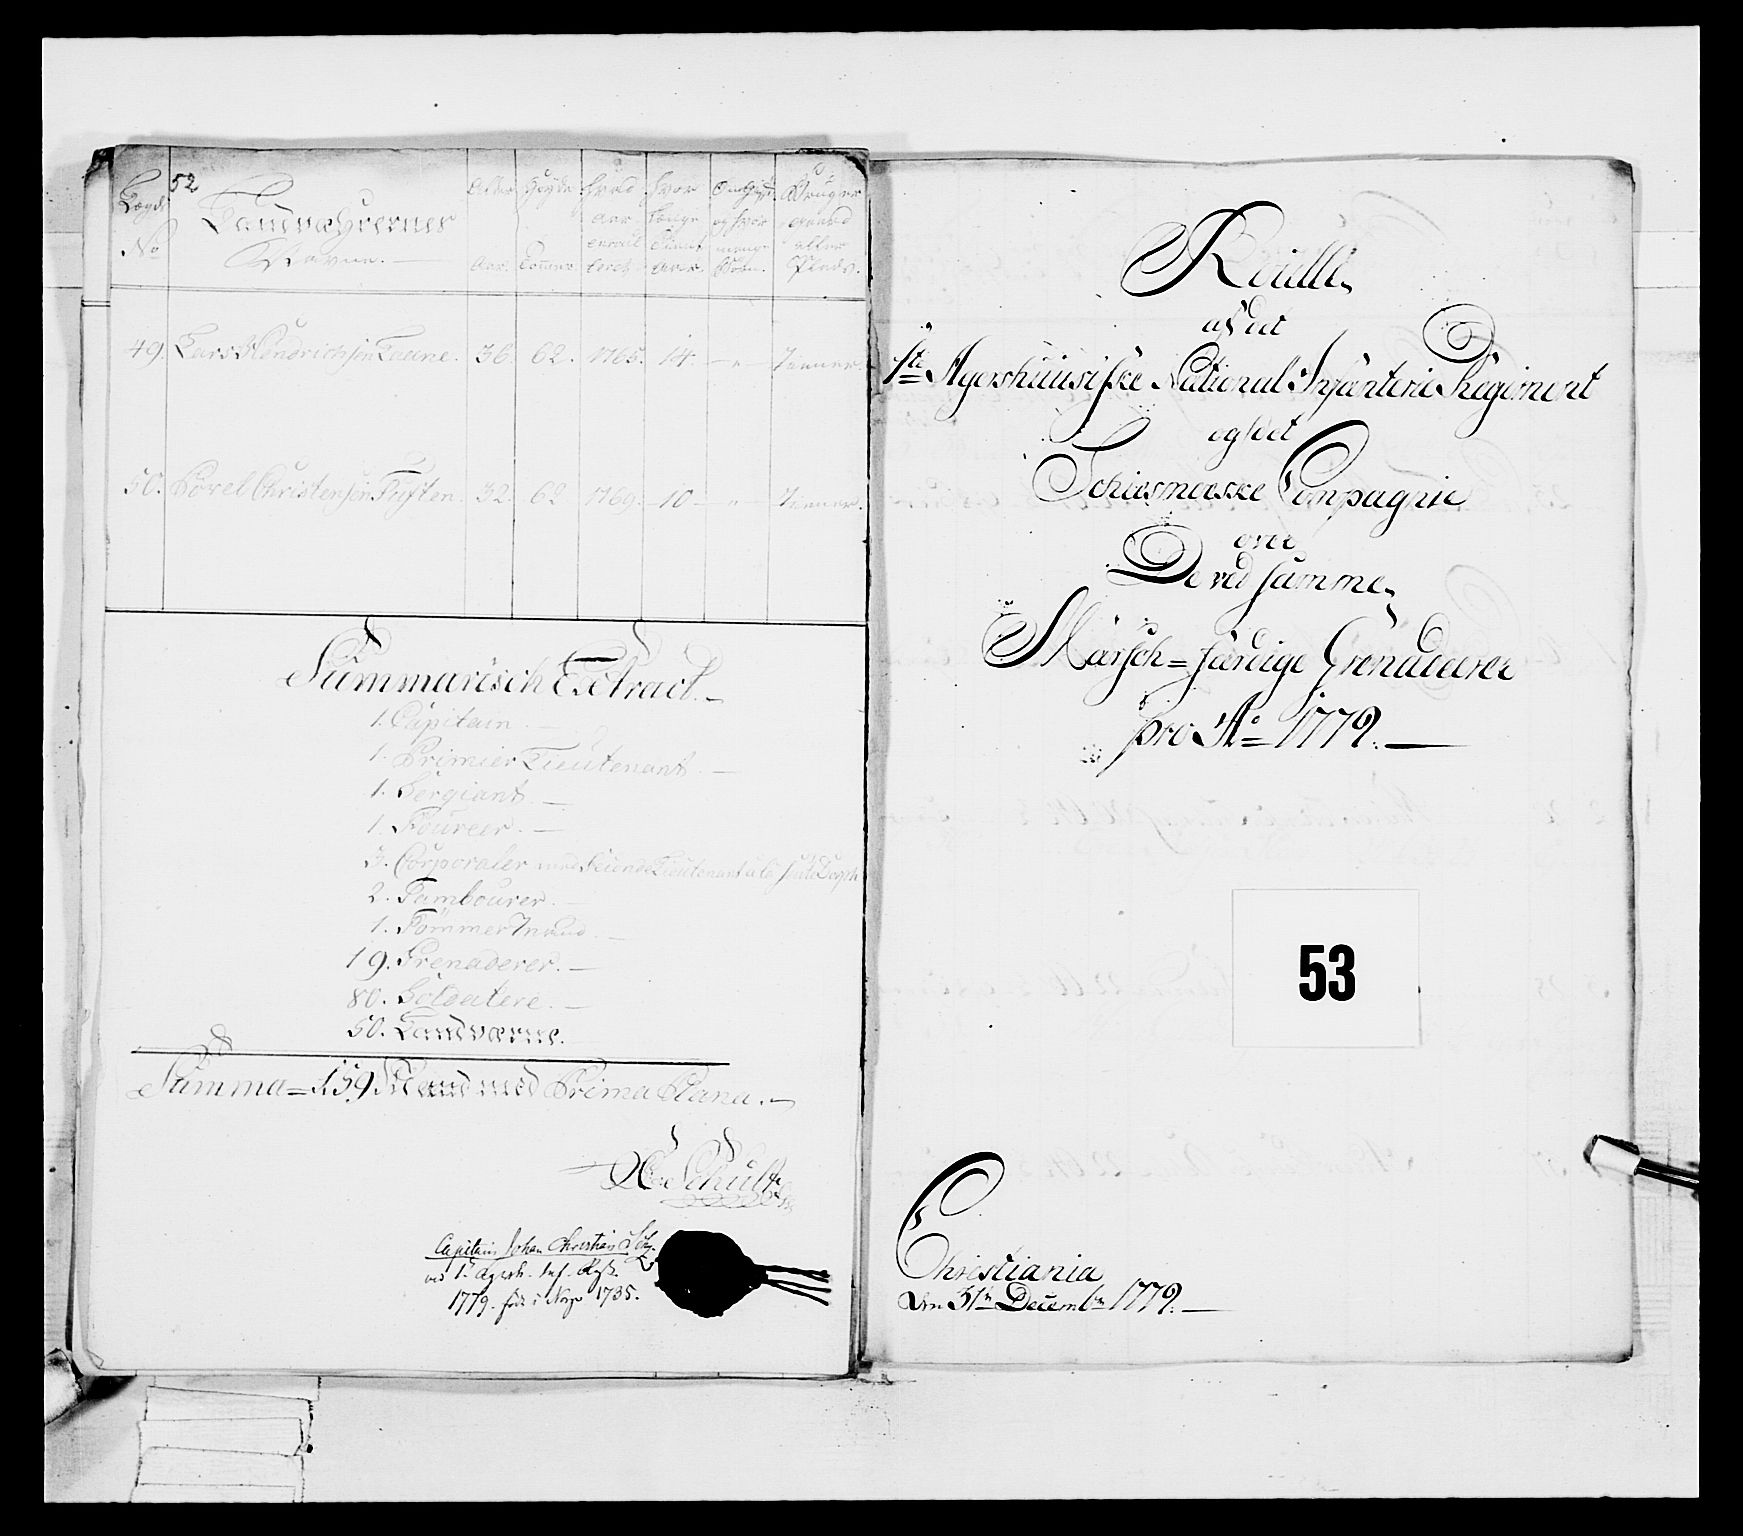 52
Lægds No
Landværnes Navne.
Alder Aar.
Høyde Tommer
hvad Aar enroulleret
hvor længe Tient Aar.
Om Gift og hvor mange Børn.
Bruger Gaard eller Plads.
49. Lars Hendrichsen Taane. 36. 62. 1765. 14. — " — Tienner.
50. Børel Christensen Tuften. 32. 62 1769. 10 — " — Tienner.
Summarisch Extract. —
1. Capitain —
1. Primier Lieutenant. —
1. Sergiant. —
1. Foureer. —
3. Corporaler med Seconde Lieutenant a la Suite
2. Tambourer. —
1. Tømmermand. —
19. Grenaderer. —
80. Soldatere. —
50. Landværne.
Summa = 159 Mand med Prima Plana. —
Schultz
Capitain Johan Christian Sch.
ved 1. Agersh. Inf. Regt.
1779. født i Norge 1735.
Roulle
af det
1ste Agershuusiske National Infanterie Regiment
og det
Compagnie
over
De ved samme
Marsch=færdige Grenaderer
pro Ao 1779. —
53
Christiania
den 31te Decembr 1779. —